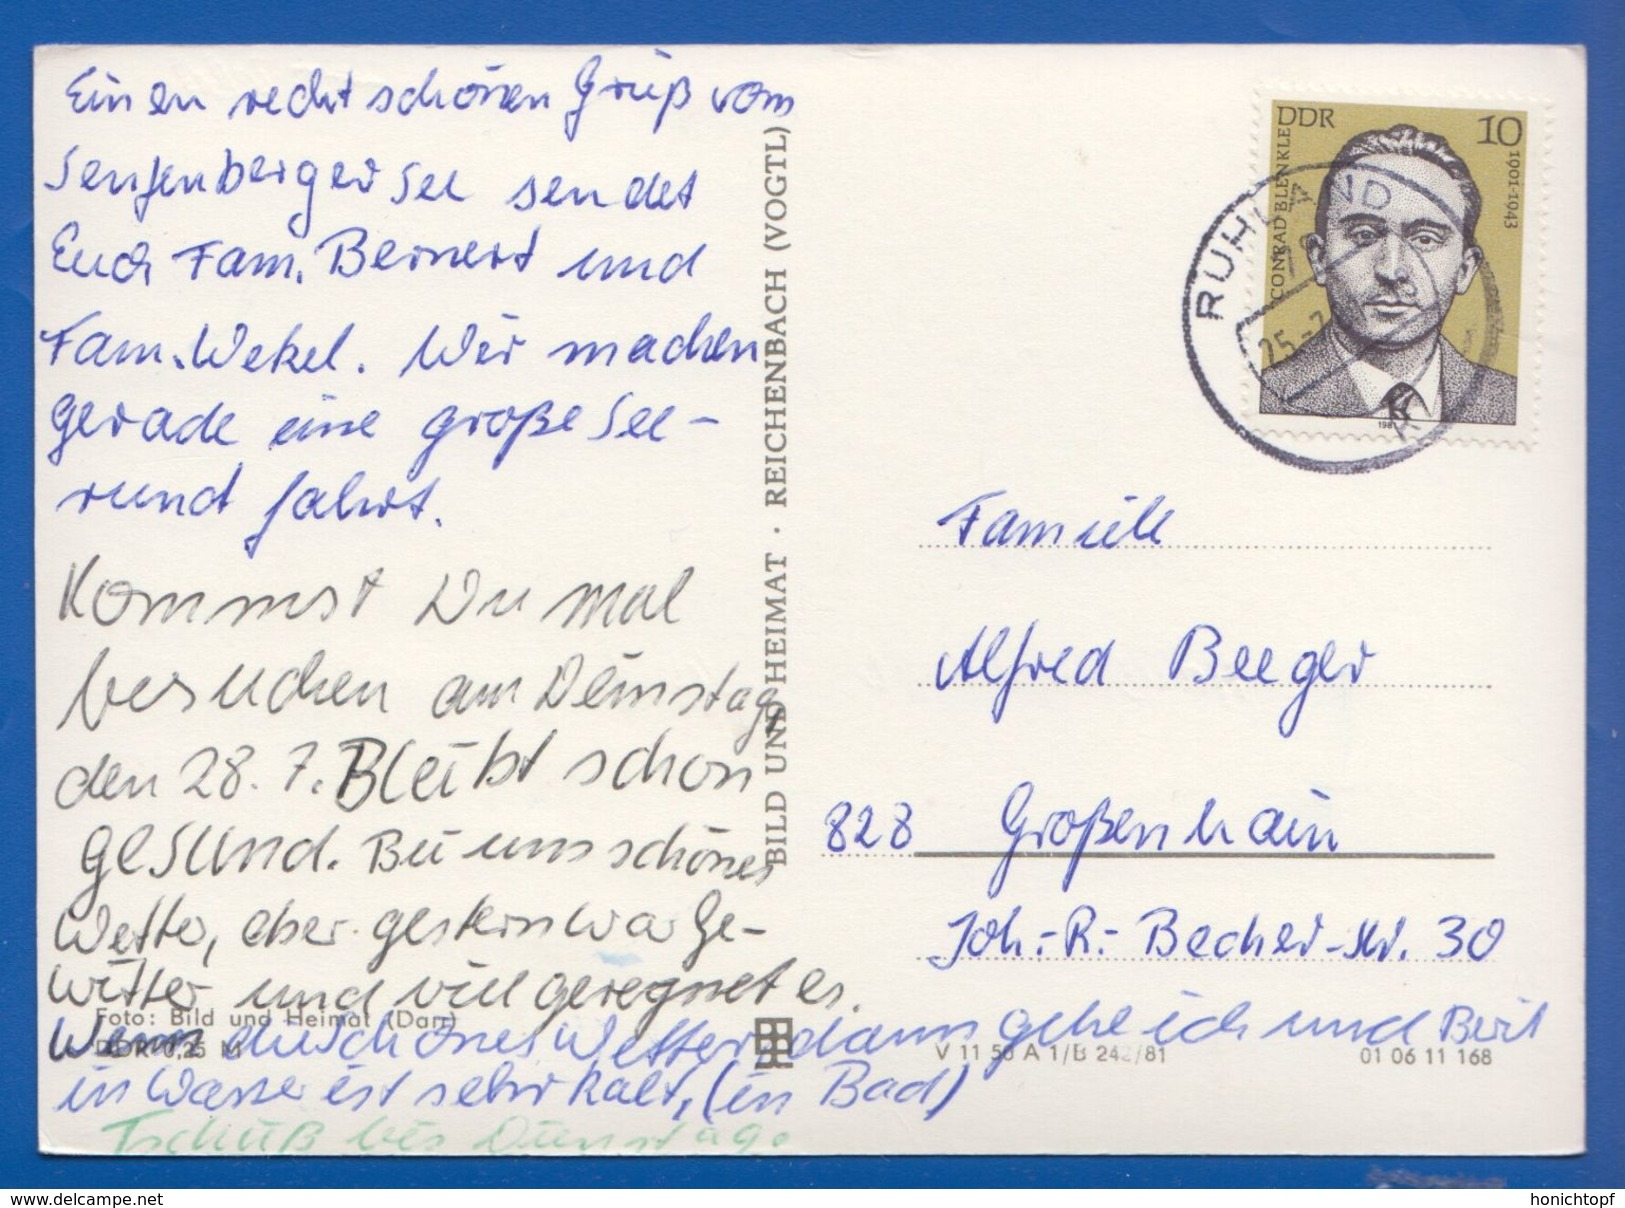 Einen recht schönen Gruß vom
Senftenberger See sendet
Euch Fam. Bernert und
Fam. Wekel. Wir machen
gerade eine große See-
rund fahrt.
Kommst Du mal
besuchen am Deinstag,
den 28. 7. Bleibt schon
gesund. Bei uns schönes
Wetter, aber gestern war Ge-
witter und viel geregnet es.
Wenn schönes Wetter, dann gehe ich und Berit
in Wasser ist sehr kalt, (in Bad)
Tschüß bis Dienstag.
Foto: Bild und Heimat (Darr)
DDR 0,25 M
BILD UND HEIMAT · REICHENBACH (VOGTL)
DDR 10
CONRAD BLENKLE
1901-1943
198
RUHLAND
25.-7
Familie
Alfred Beeger
828 Großenhain
Joh.-R.-Becher-Str. 30
V 11 50 A 1/B 242/81
01 06 11 168
www.delcampe.net
honichtopf